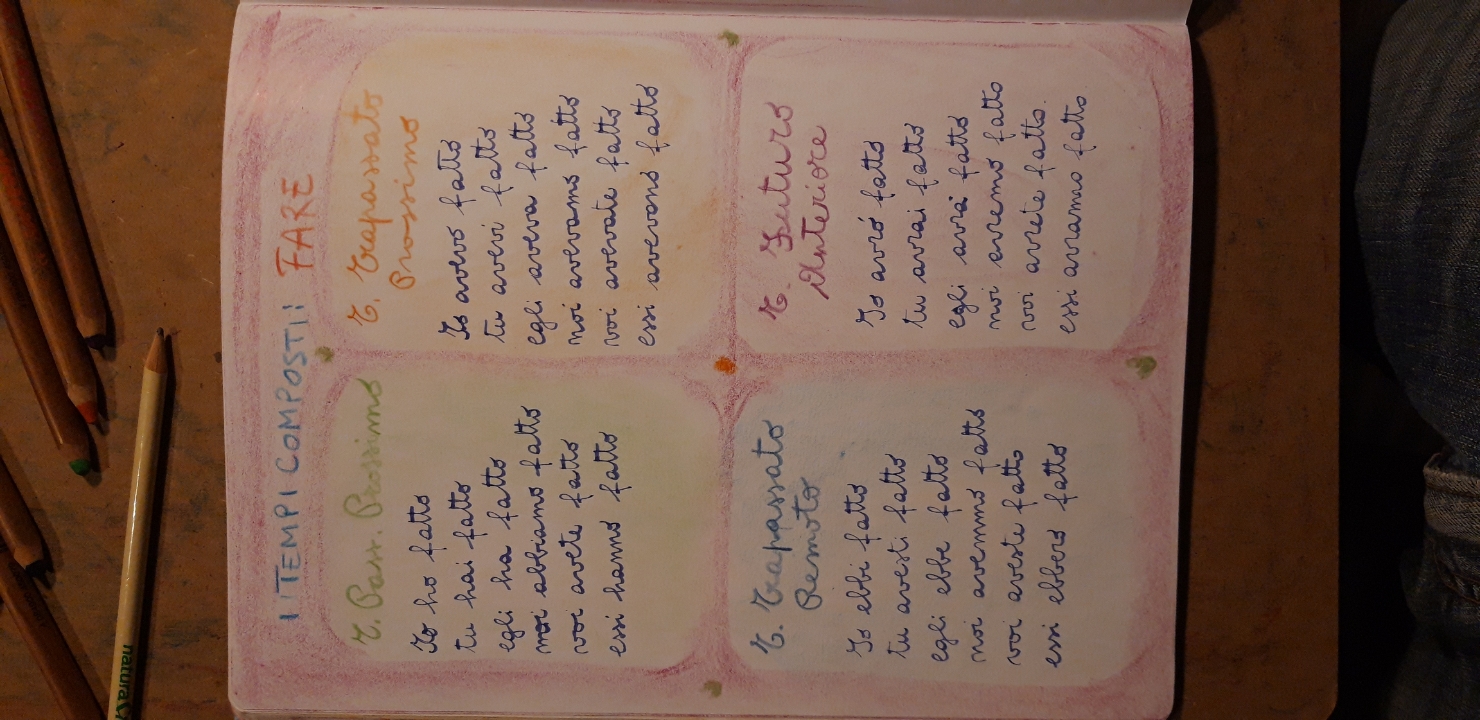 I TEMPI COMPOSTI: FARE
T. Pass. Prossimo
Io ho fatto
tu hai fatto
egli ha fatto
noi abbiamo fatto
voi avete fatto
essi hanno fatto
T. Trapassato
Prossimo
Io avevo fatto
tu avevi fatto
egli aveva fatto
noi avevamo fatto
voi avevate fatto
essi avevano fatto
T. Trapassato
Remoto
Io ebbi fatto
tu avesti fatto
egli ebbe fatto
noi avemmo fatto
voi aveste fatto
essi ebbero fatto
T. Futuro
Anteriore
Io avró fatto
tu avrai fatto
egli avrá fatto
noi avremo fatto
voi avrete fatto.
essi avranno fatto